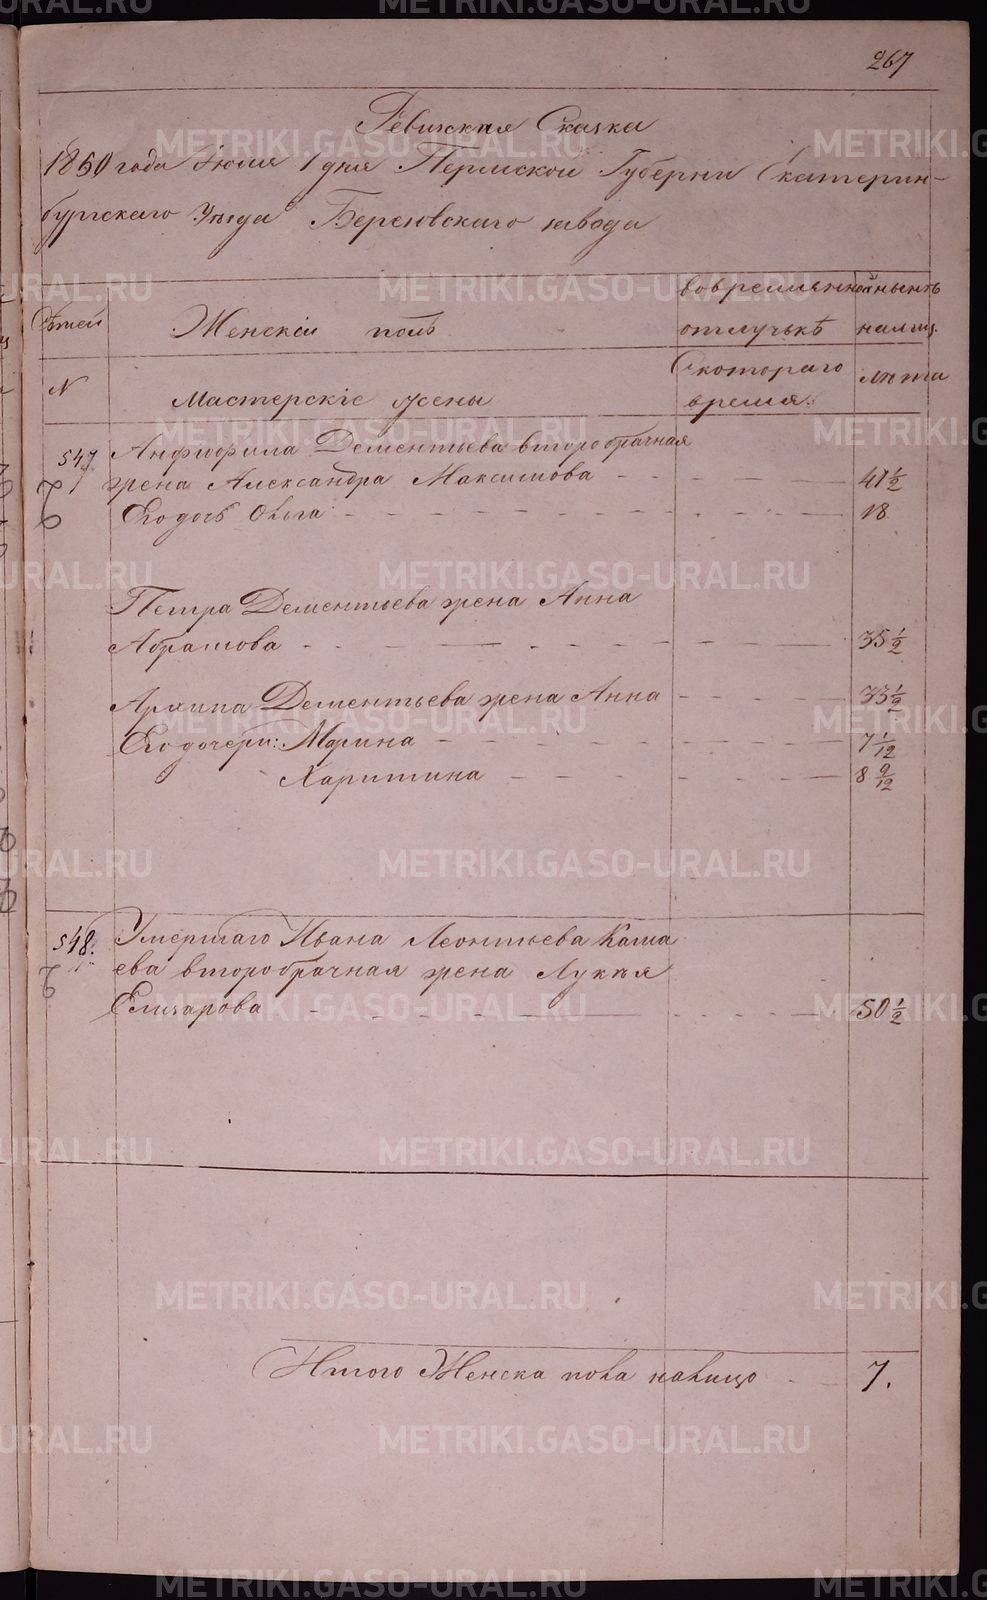 267
Ревижкая Сказка
1850 года Июля 1 дня Пермской Губерни Екатерин-
бургскаго Уезда Березовскаго завода
Семей
Женскiй полъ
вовременной
отлучькѣ
ныньѣ
налиц.
N
Мастерскiе жены
Скотораго
время:
лѣта
547
Анфиофила Дементьева второбрачная
жена Александра Максимова 41 1/2
Его дочь Ольга 18
Петра Дементьева жена Анна
Абрамова 35 1/2
Архипа Дементьева жена Анна 33 1/2
Его дочери: Марина 7 1/12
Харитина 8 9/12
548.
Умершаго Ивана Леонтьева Каша
ева второбрачная жена Лукѣя
Елизарова 50 1/2
Итого Женска пола налицо 7.
METRIKI.GASO-URAL.RU